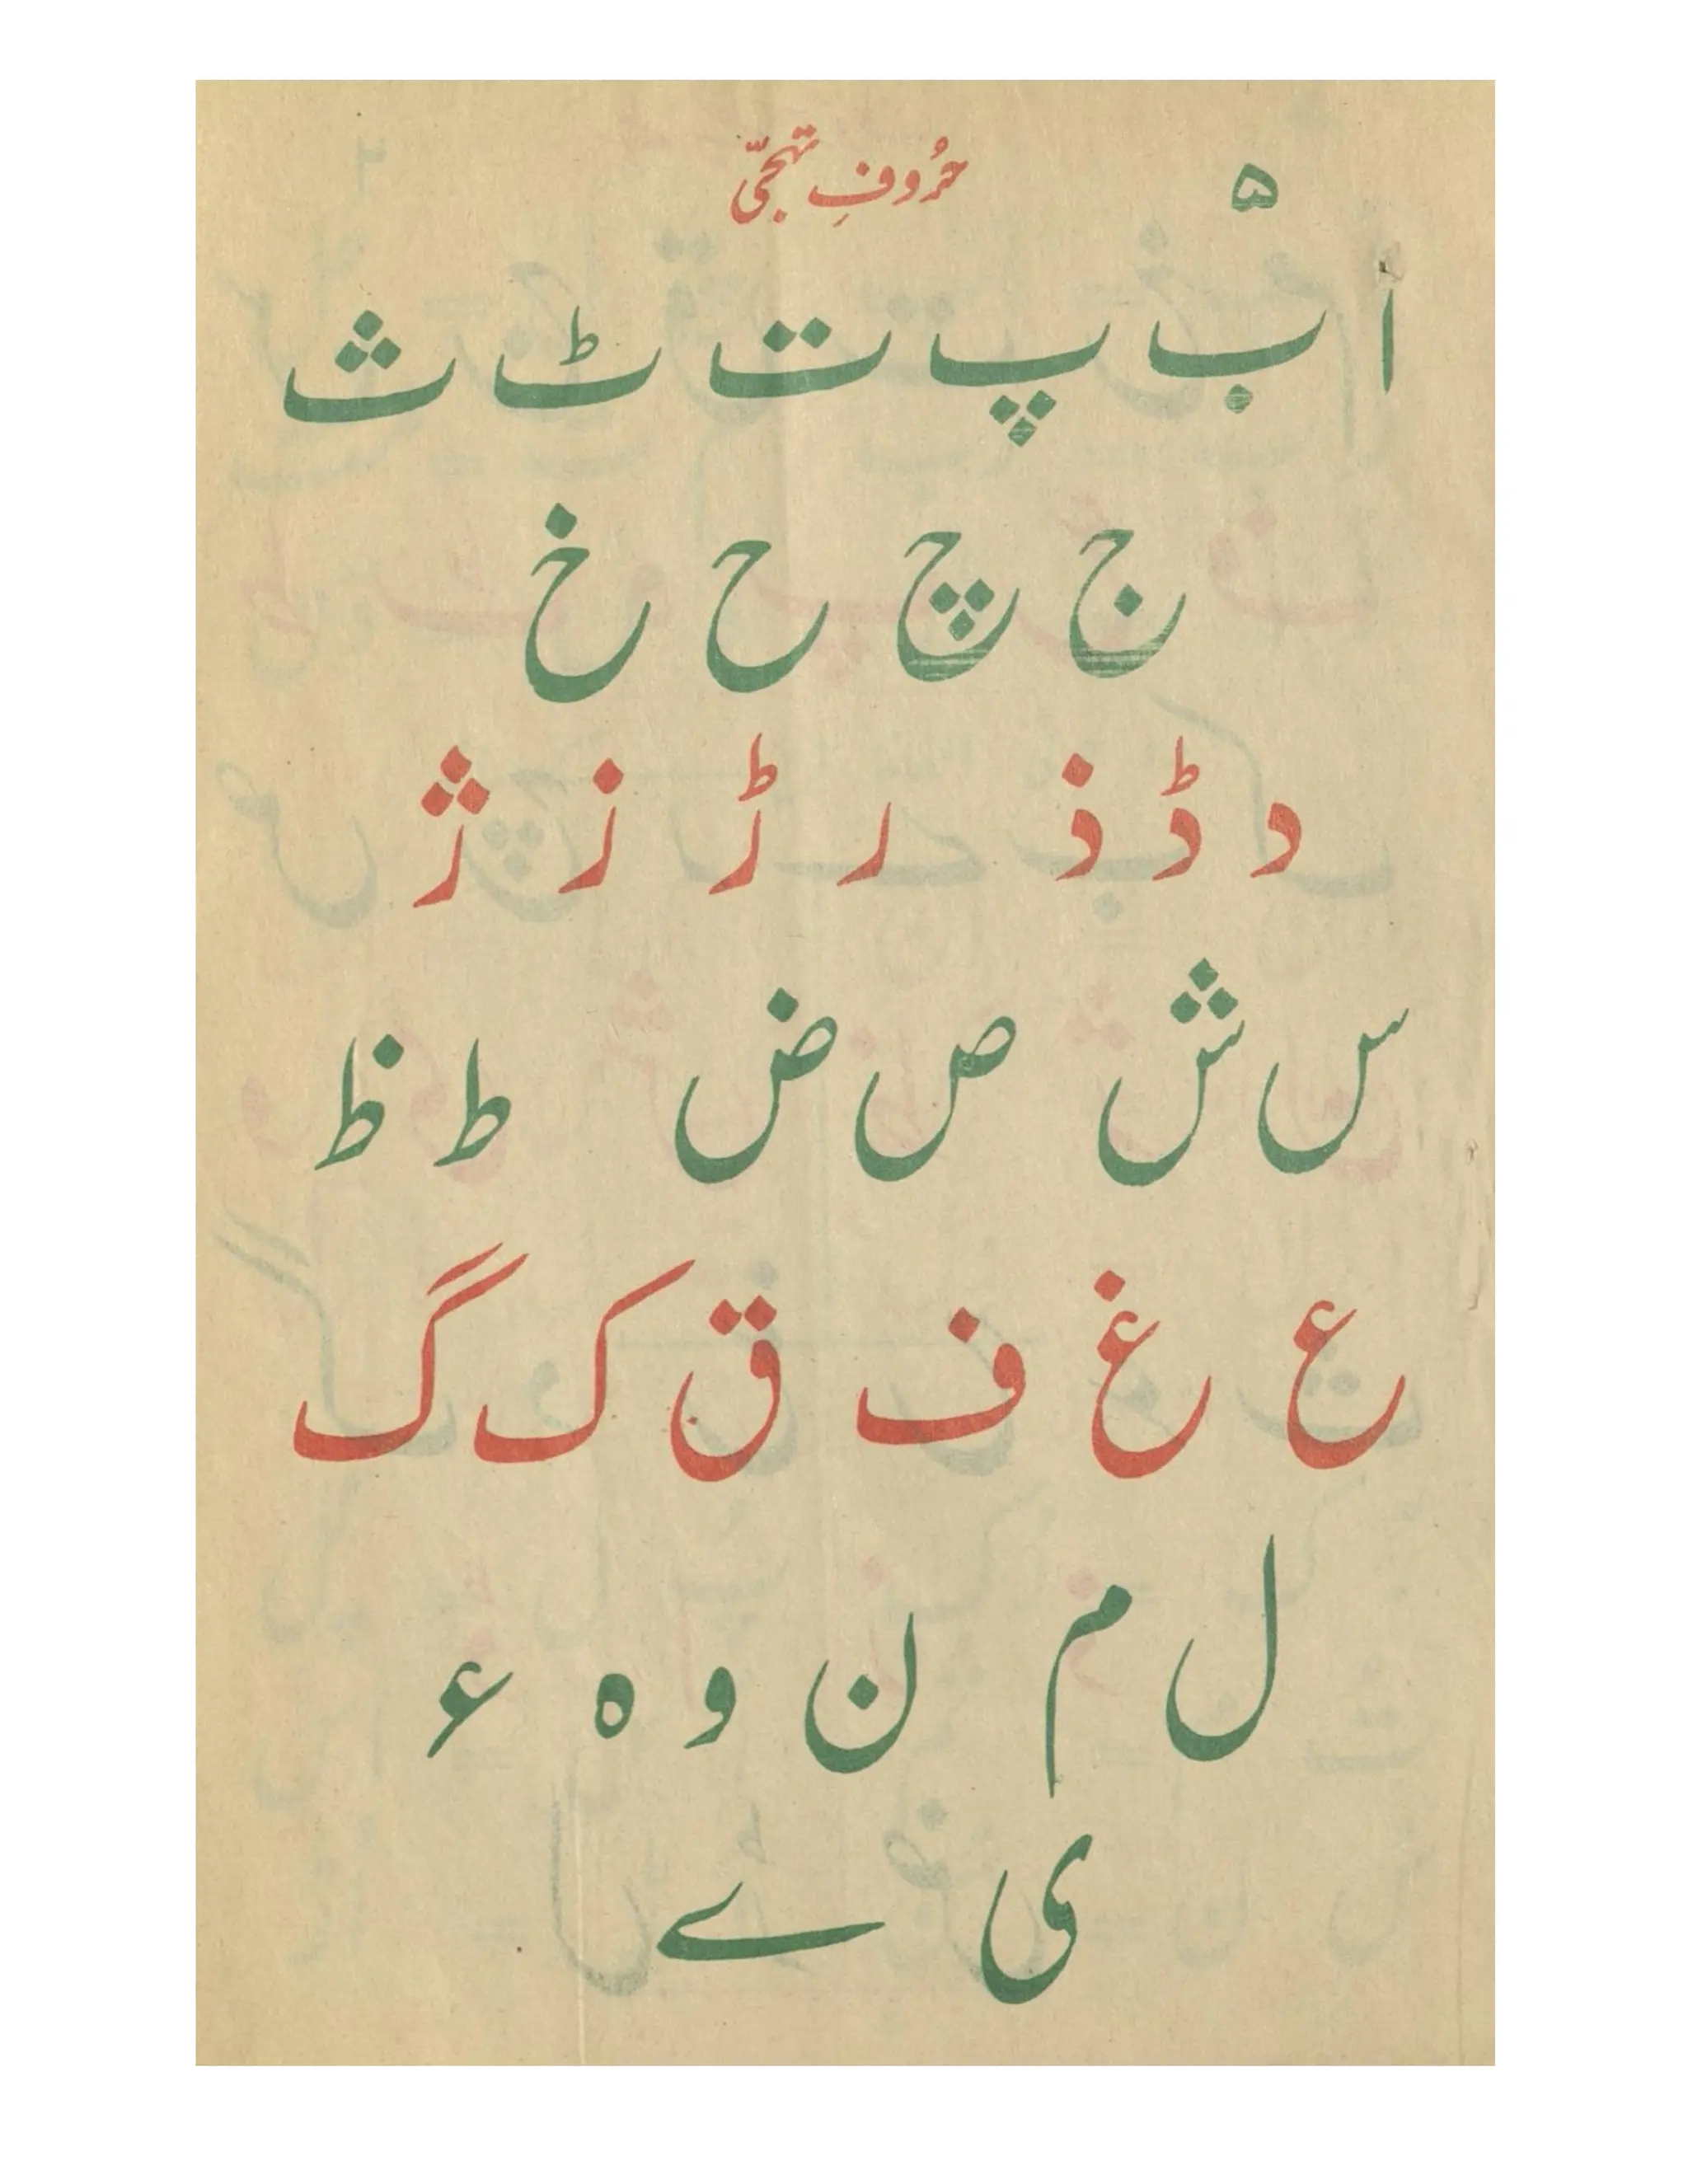 ۵
حُروفِ تہجّی
ا ب پ ت ٹ ث
ج چ ح خ
د ڈ ذ ر ڑ ز ژ
س ش ص ض ط ظ
ع غ ف ق ک گ
ل م ن و ہ ء
ی ے